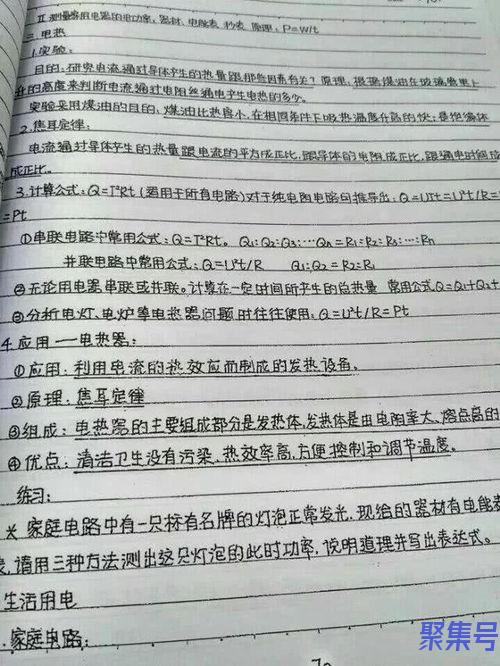 Ⅱ测量家用电器的电功率：器材：电能表 秒表 原理：P=W/t
三 电热
1.实验：
目的：研究电流通过导体产生的热量跟那些因素有关？原理：根据煤油在玻璃管里上
升的高度来判断电流通过电阻丝通电产生电热的多少。
实验采用煤油的目的：煤油比热容小，在相同条件下吸热温度升高的快：是绝缘体
2.焦耳定律：
电流通过导体产生的热量跟电流的平方成正比，跟导体的电阻成正比，跟通电时间成
成正比。
3.计算公式：Q=I²Rt（适用于所有电路）对于纯电阻电路可推导出：Q=UIt=U²t/R=
=Pt
①串联电路中常用公式：Q=I²Rt。 Q₁:Q₂:Q₃:…Qn=R₁:R₂:R₃:…:Rn
并联电路中常用公式：Q=U²t/R Q₁:Q₂=R₂:R₁
②无论用电器串联或并联。计算在一定时间所产生的总热量 常用公式Q=Q₁+Q₂+
③分析电灯、电炉等电热器问题时往往使用：Q=U²t/R=Pt
4.应用——电热器：
①应用：利用电流的热效应而制成的发热设备。
②原理：焦耳定律
③组成：电热器的主要组成部分是发热体，发热体是由电阻率大、熔点高的
④优点：清洁卫生没有污染、热效率高、方便控制和调节温度。
练习：
※ 家庭电路中有一只标有名牌的灯泡正常发光，现给的器材有电能表
表，请用三种方法测出这只灯泡的此时功率，说明道理并写出表达式。
生活用电
.家庭电路：
聚集号